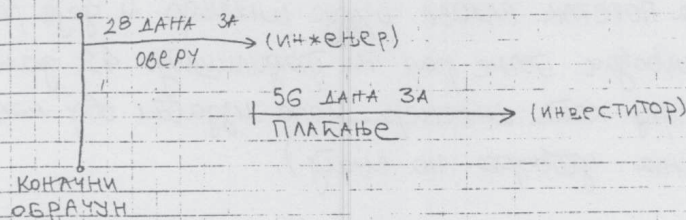 28 ДАНА ЗА
ОВЕРУ
(ИНЖЕЊЕР)
56 ДАНА ЗА
ПЛАЋАЊЕ
(ИНВЕСТИТОР)
КОНАЧНИ
ОБРАЧУН